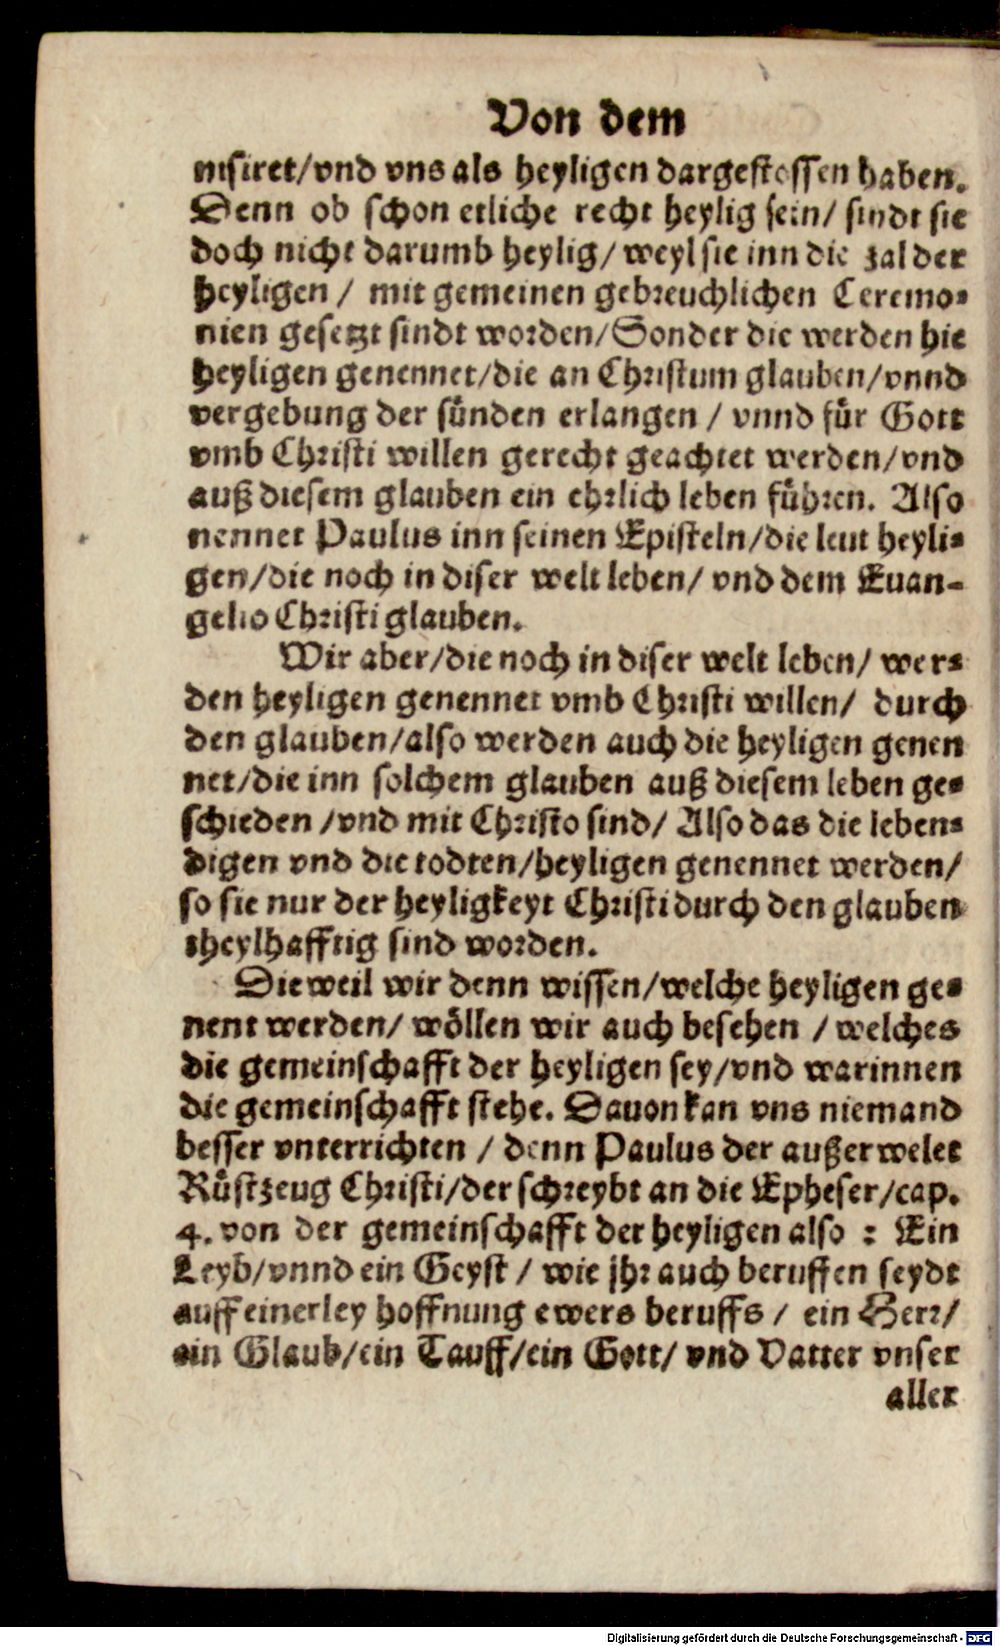 Von dem
nisiret/vnd vns als heyligen dargestossen haben.
Denn ob schon etliche recht heylig sein/ sindt sie
doch nicht darumb heylig/ weyl sie inn die zal der
heyligen / mit gemeinen gebreuchlichen Ceremo⸗
nien gesetzt sindt worden/Sonder die werden hie
heyligen genennet/die an Christum glauben/vnnd
vergebung der sünden erlangen / vnnd für Gott
vmb Christi willen gerecht geachtet werden/vnd
auß diesem glauben ein ehrlich leben führen. Also
nennet Paulus inn seinen Episteln/die leut heyli⸗
gen/die noch in diser welt leben/ vnd dem Euan-
gelio Christi glauben.
Wir aber/die noch in diser welt leben/ wer⸗
den heyligen genennet vmb Christi willen/ durch
den glauben/also werden auch die heyligen genen
net/die inn solchem glauben auß diesem leben ge⸗
schieden /vnd mit Christo sind/ Also das die leben⸗
digen vnd die todten/heyligen genennet werden/
so sie nur der heyligkeyt Christi durch den glauben
theylhafftig sind worden.
Dieweil wir denn wissen/welche heyligen ge⸗
nent werden/ wöllen wir auch besehen / welches
die gemeinschafft der heyligen sey/vnd warinnen
die gemeinschafft stehe. Dauon kan vns niemand
besser vnterrichten / denn Paulus der außerwelet
Rüstzeug Christi/der schreybt an die Epheser/cap.
4. von der gemeinschafft der heyligen also : Ein
Leyb/vnnd ein Geyst / wie jhr auch beruffen seydt
auff einerley hoffnung ewers beruffs / ein Herr/
ein Glaub/ein Tauff/ein Gott/ vnd Vatter vnser
aller
Digitalisierung gefördert durch die Deutsche Forschungsgemeinschaft - DFG